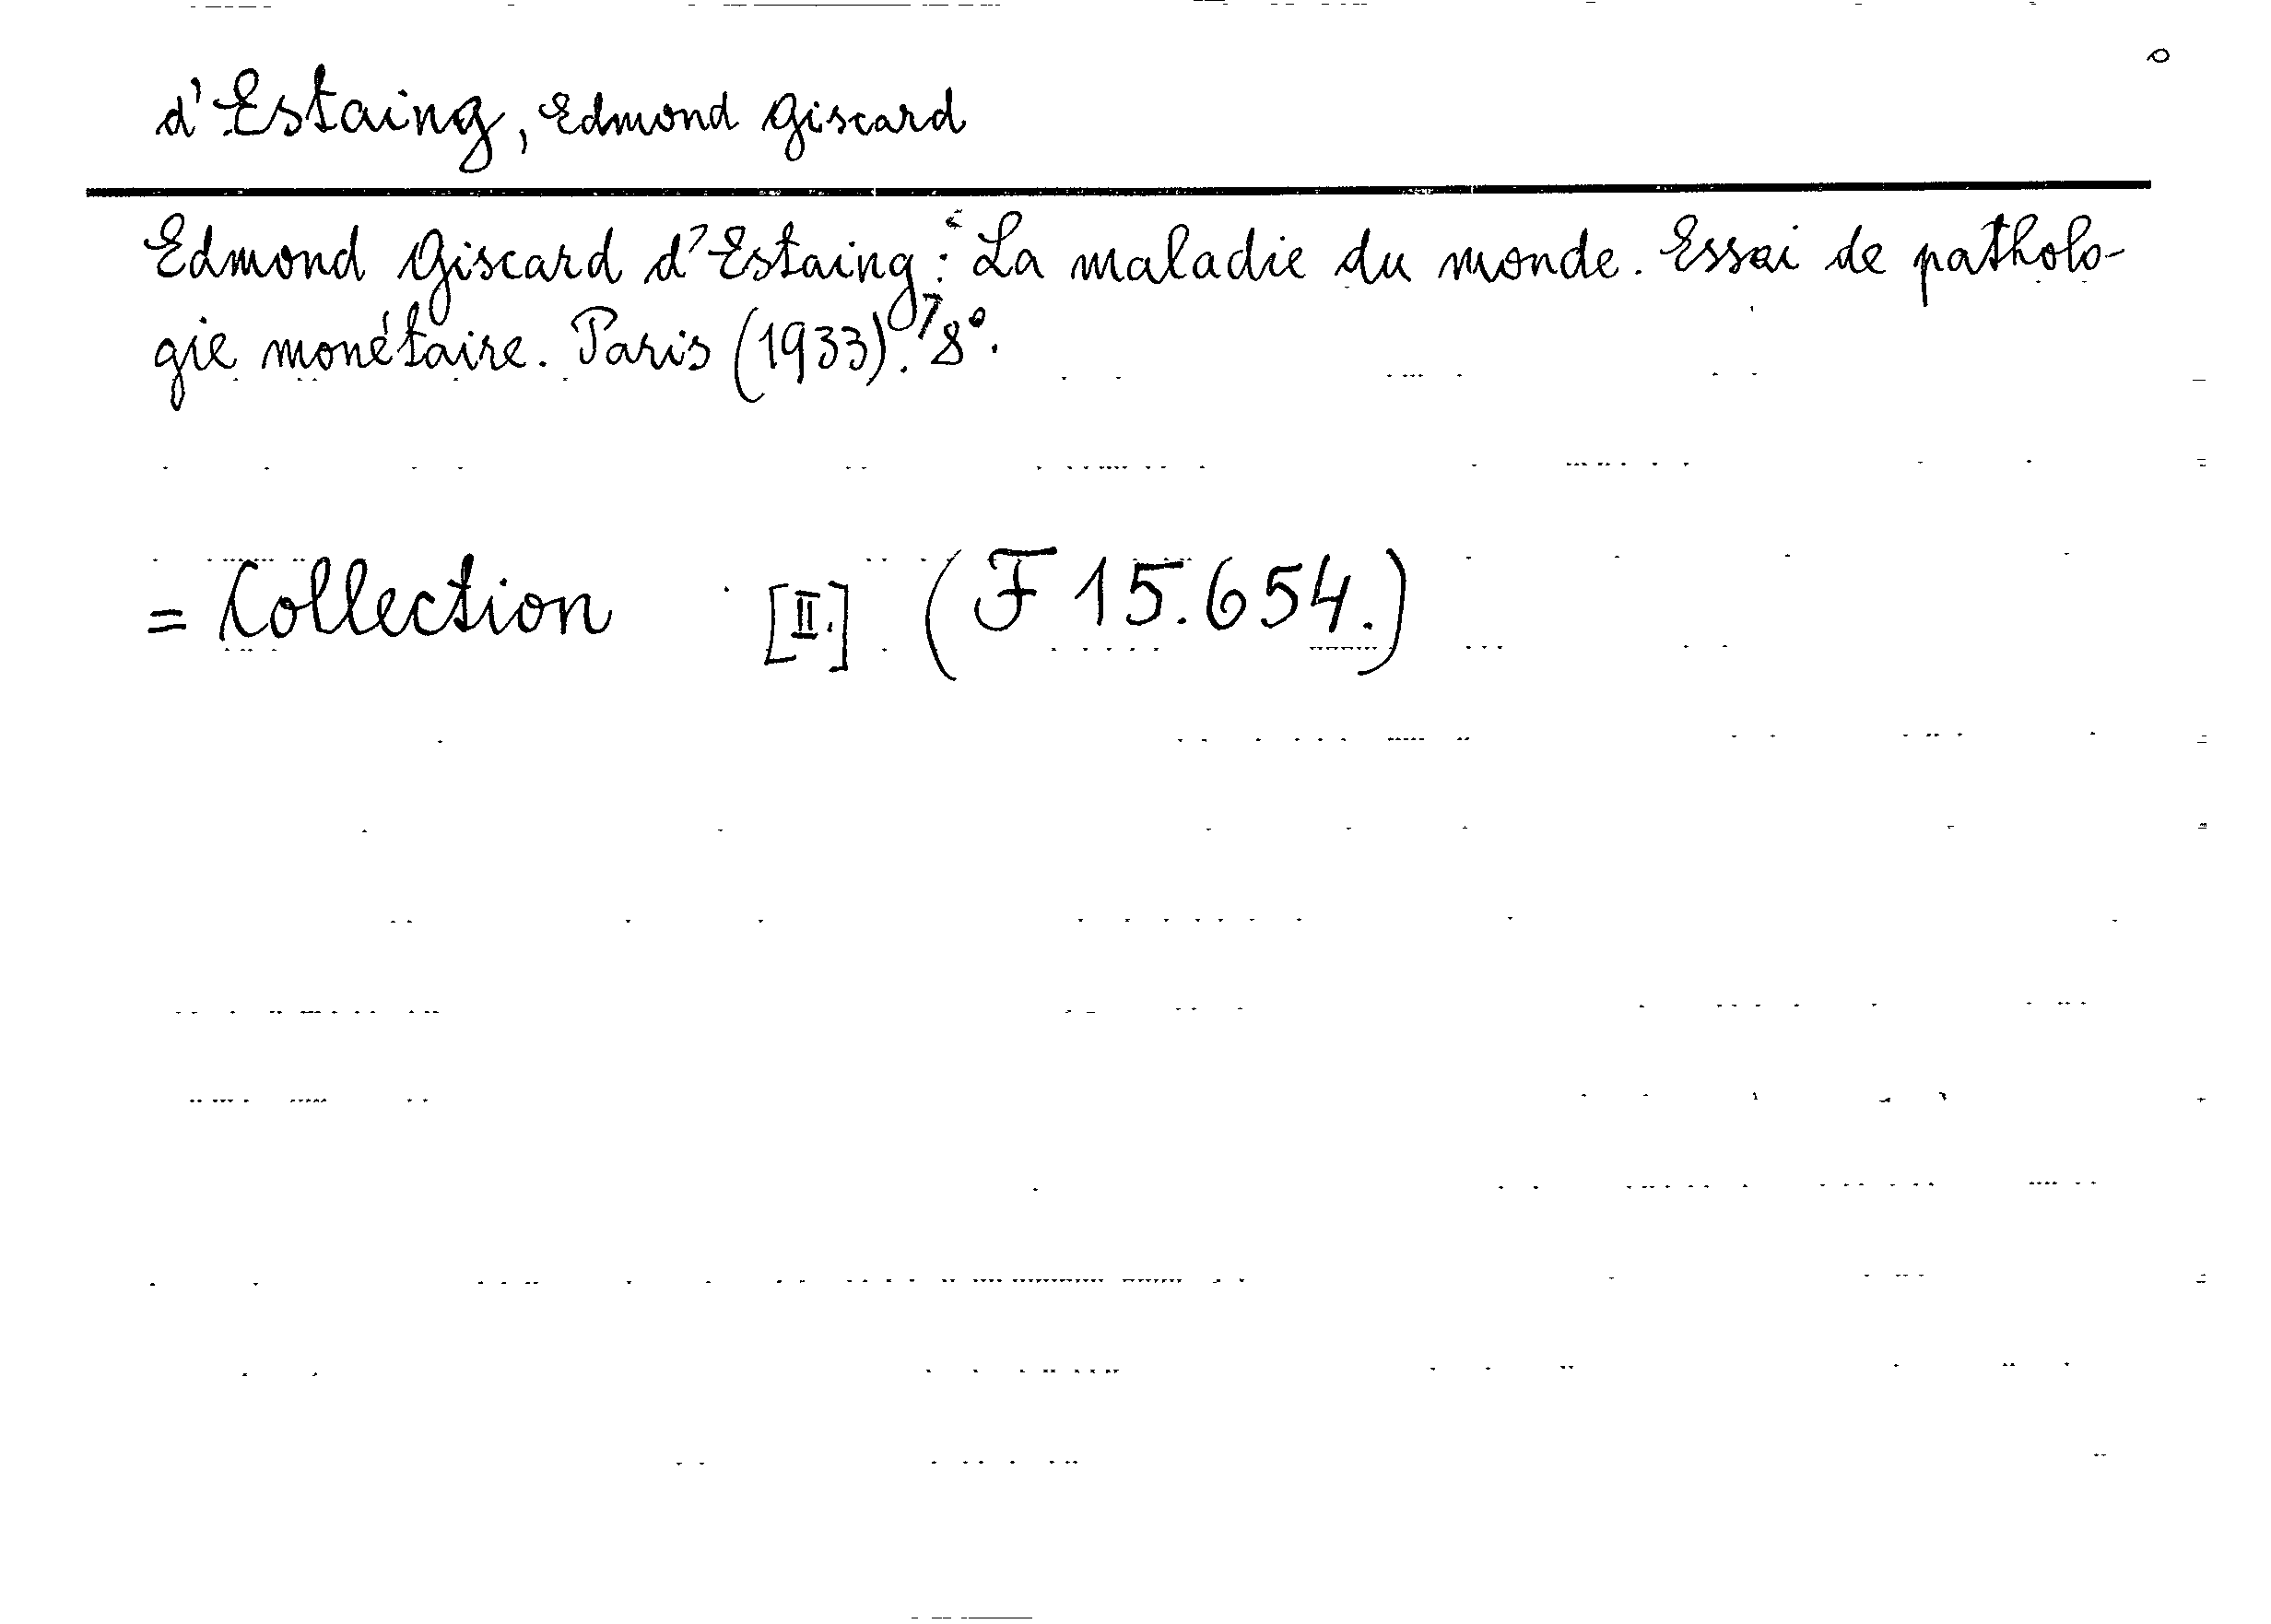 d'Estaing, Edmond Giscard
Edmond Giscard d'Estaing: La maladie du monde. Essai de patholo-
gie monétaire. Paris (1933). 8°.
= Collection [II.] (F 15.654.)